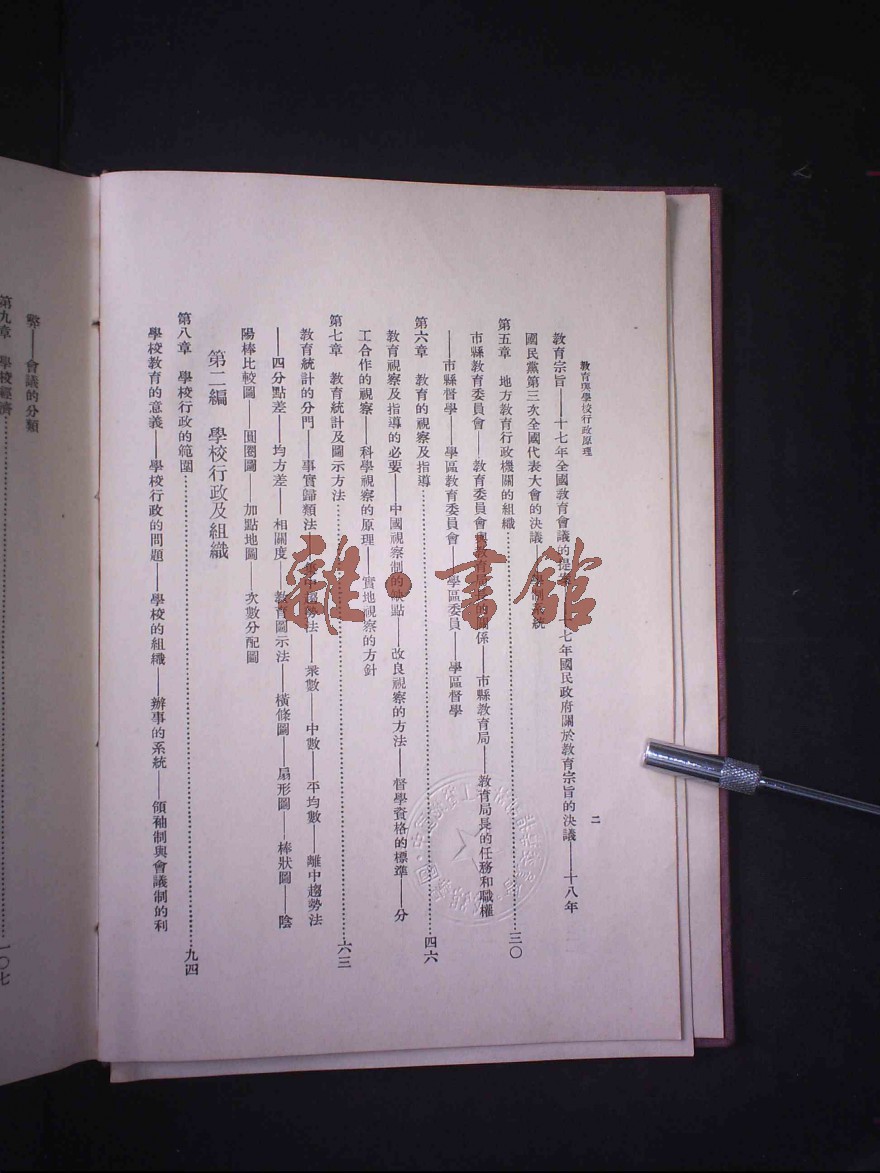 教育與學校行政原理
二
教育宗旨——十七年全國教育會議的提案——十七年國民政府關於教育宗旨的決議——十八年
國民黨第三次全國代表大會的決議——學制系統
第五章 地方教育行政機關的組織……三〇
市縣教育委員會——教育委員會與教育局長的關係——市縣教育局——教育局長的任務和職權
——市縣督學——學區教育委員會——學區委員——學區督學
第六章 教育的視察及指導……四六
教育視察及指導的必要——中國視察制的缺點——改良視察的方法——督學資格的標準——分
工合作的視察——科學視察的原理——實地視察的方針
第七章 教育統計及圖示方法……六三
教育統計的分門——事實歸類法——集中趨勢法——衆數——中數——平均數——離中趨勢法
——四分點差——均方差——相關度——教育圖示法——橫條圖——扇形圖——棒狀圖——陰
陽棒比較圖——圓圈圖——加點地圖——次數分配圖
第二編 學校行政及組織
第八章 學校行政的範圍……九四
學校教育的意義——學校行政的問題——學校的組織——辦事的系統——領袖制與會議制的利
弊——會議的分類
第九章 學校經濟……一〇七
雜·書館